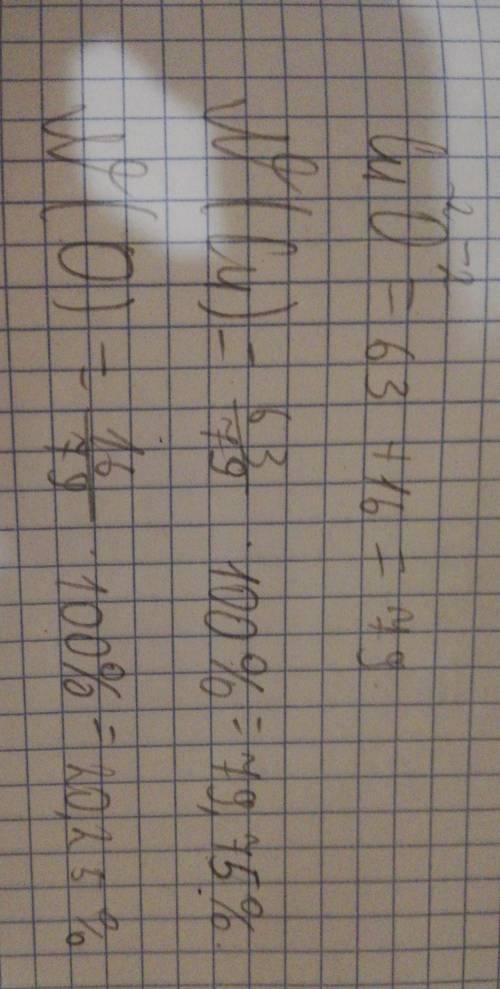 Cu⁺²O⁻² = 63 + 16 = 79
W(Cu) = 63/79 · 100% = 79,75%.
W(O) = 16/79 · 100% = 20,25%